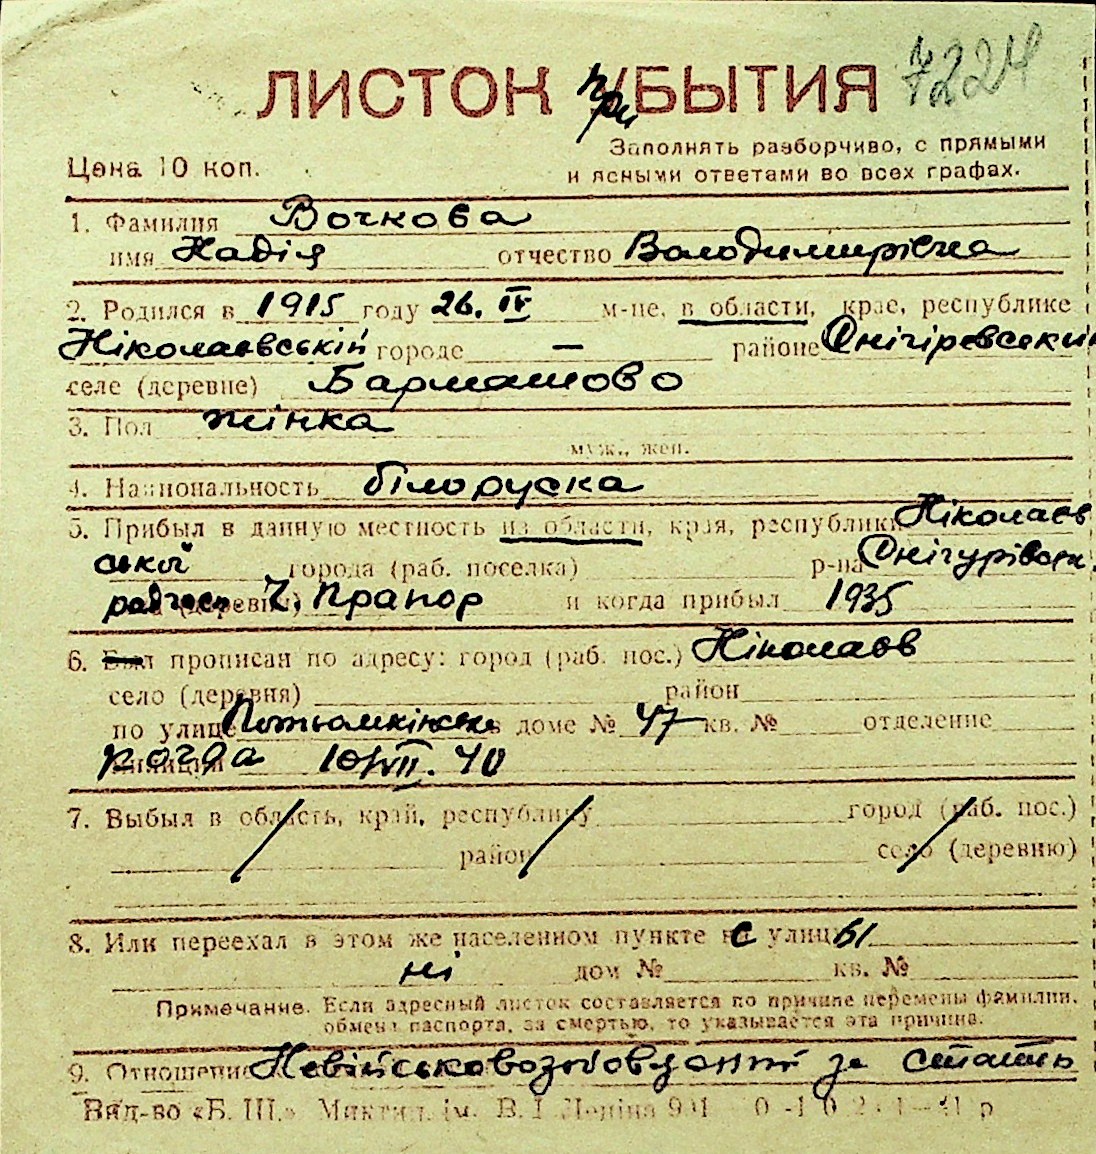 7224
ЛИСТОК при УБЫТИЯ
Заполнять разборчиво, с прямыми
Цена 10 коп.
и ясными ответами во всех графах.
1. Фамилия Вочкова
имя Надія отчество Володимирівна
2. Родился в 1915 году 26. IV м-це, в области, крае, республике
Ніколаєвській городе — районе Снігірєвський
селе (деревне) Бармашово
3. Пол жінка
муж., жен.
4. Национальность білоруска
5. Прибыл в данную местность из области, края, республики Ніколаєв
ської города (раб. поселка) р-на
радгосп (деревни) Ч. Прапор и когда прибыл 1935
6. Был прописан по адресу: город (раб. пос.) Ніколаєв
село (деревня) район
по улице Потьомкінська в доме № 47 кв. № отделение
милиции когда 10/VII. 40
7. Выбыл в область, край, республику город (раб. пос.)
район село (деревню)
8. Или переехал в этом же населенном пункте с улицы
ні дом № кв. №
Примечание. Если адресный листок составляется по причине перемены фамилии,
обмена паспорта, за смертью, то указывается эта причина.
9. Отношение за статтю
Вид-во «Б. Ш.» ім. В. І. Леніна